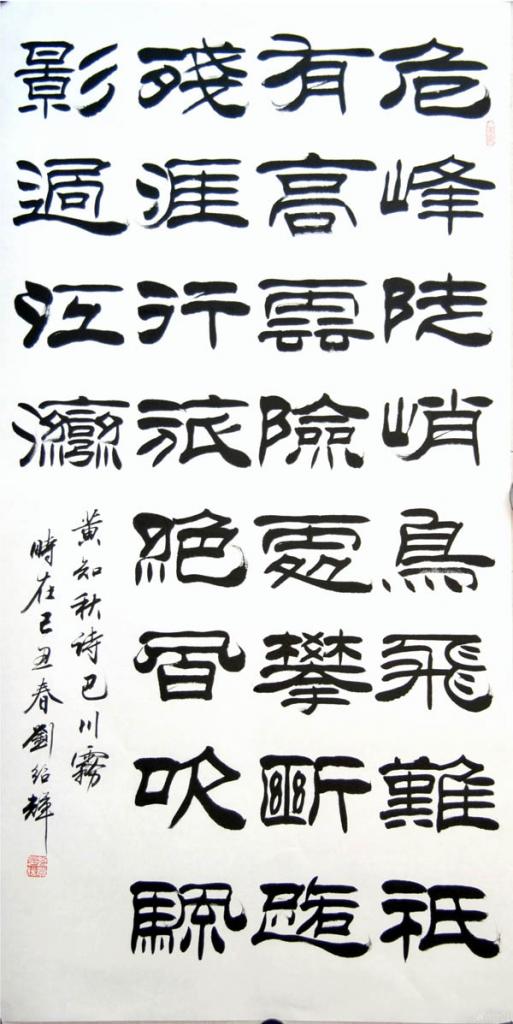 危峰陡峭鳥飛難祇
有高雲險處攀斷路
殘涯行旅絕風吹騾
影過江灣
黄知秋诗巴川霧
時在己丑春劉绍輝